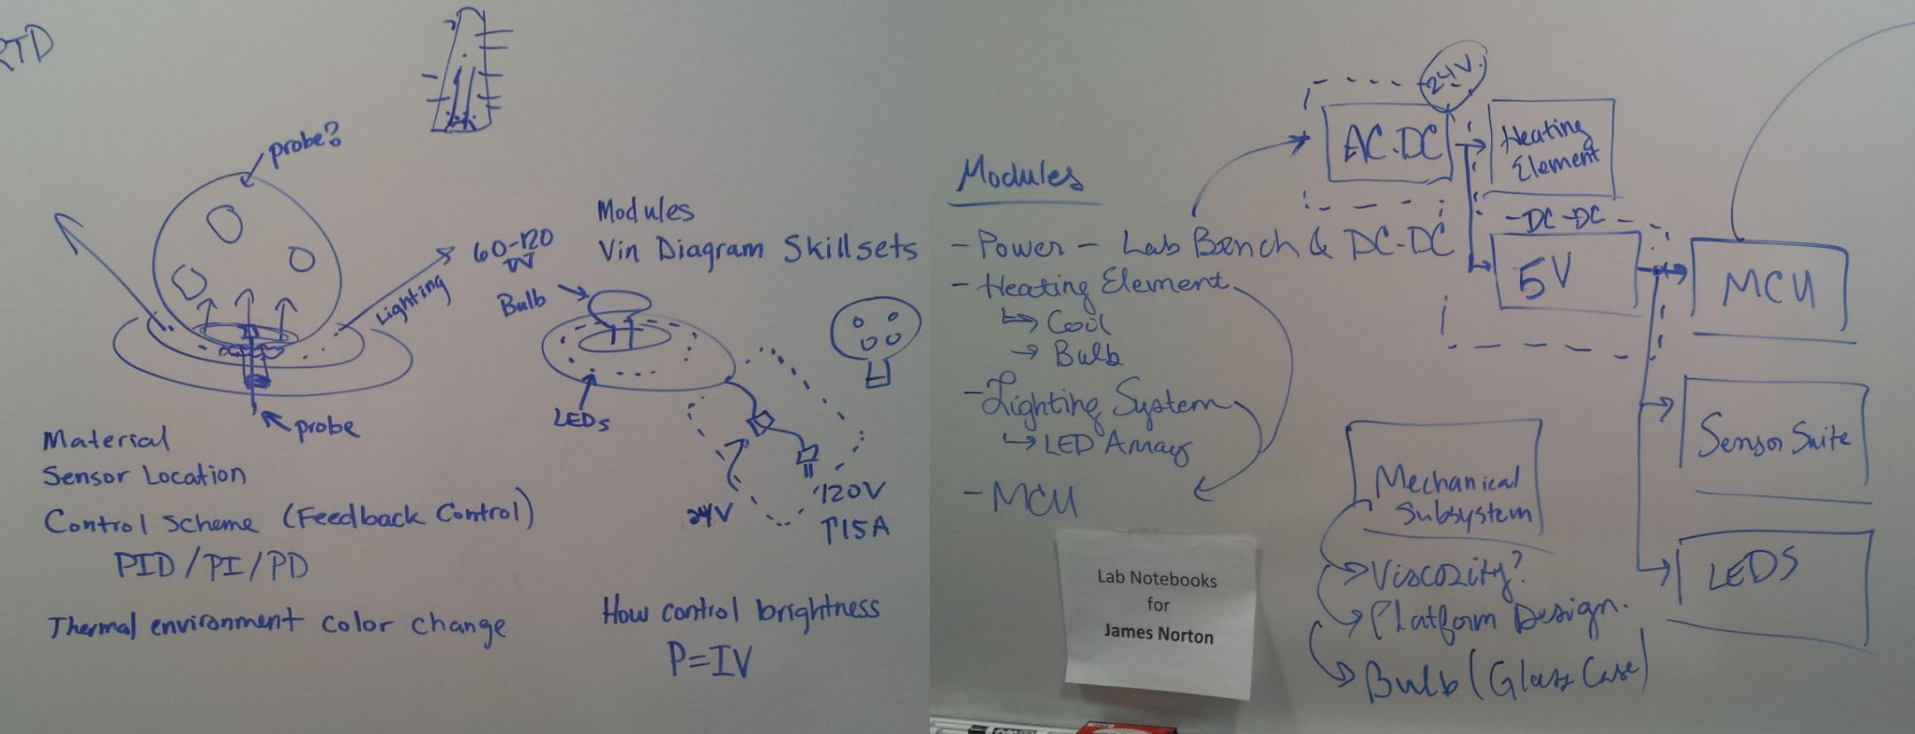 RTD
probe?
60-120
W
Lighting
probe
Material
Sensor Location
Control Scheme (Feedback Control)
PID/PI/PD
Thermal environment color change
Modules
Vin Diagram Skillsets
Bulb
LEDs
24V
120V
15A
How control brightness
P=IV
Modules
- Power - Lab Bench & DC-DC
- Heating Element
↳ Coil
→ Bulb
- Lighting System
↳ LED Array
- MCU
24V.
AC-DC
Heating
Element
DC-DC
5V
MCU
Sensor Suite
LEDS
Mechanical
Subsystem
→ Viscozity?
→ Platform Design.
→ Bulb (Glass Case)
Lab Notebooks
for
James Norton